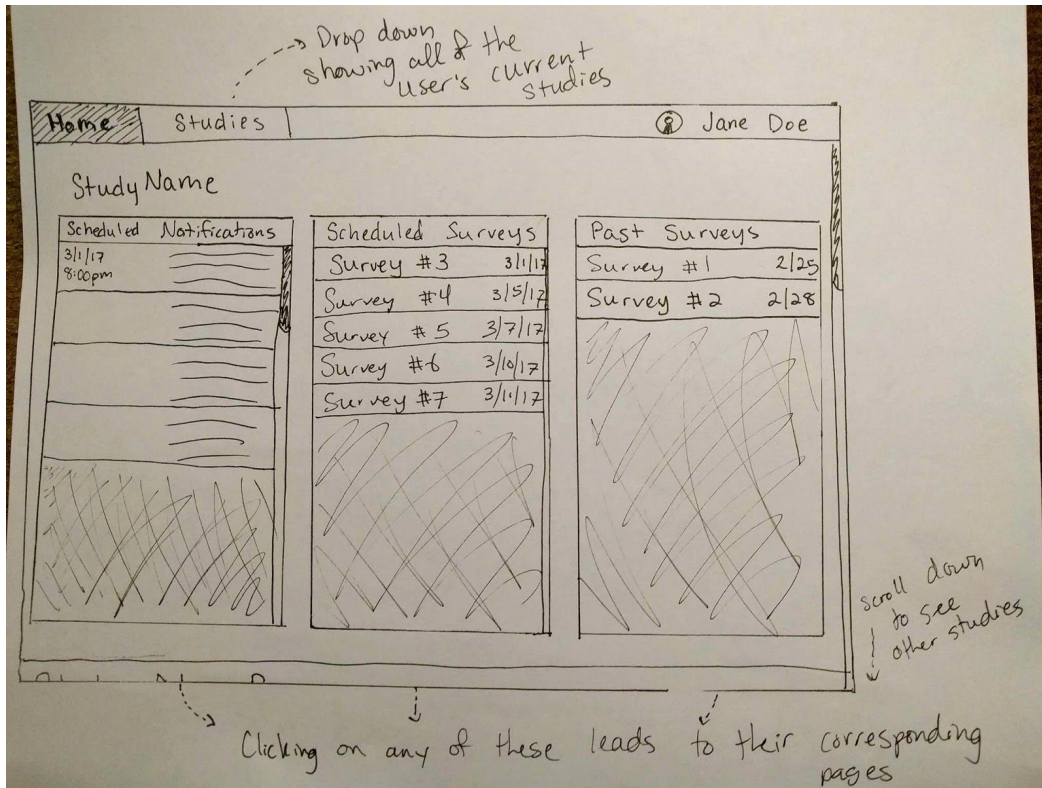 Drop down
showing all of the
user's current
studies
Home Studies Jane Doe
Study Name
Scheduled Notifications
3/1/17
8:00pm
Scheduled Surveys
Survey #3 3/1/17
Survey #4 3/5/17
Survey #5 3/7/17
Survey #6 3/10/17
Survey #7 3/11/17
Past Surveys
Survey #1 2/25
Survey #2 2/28
scroll down
to see
other studies
Clicking on any of these leads to their corresponding
pages